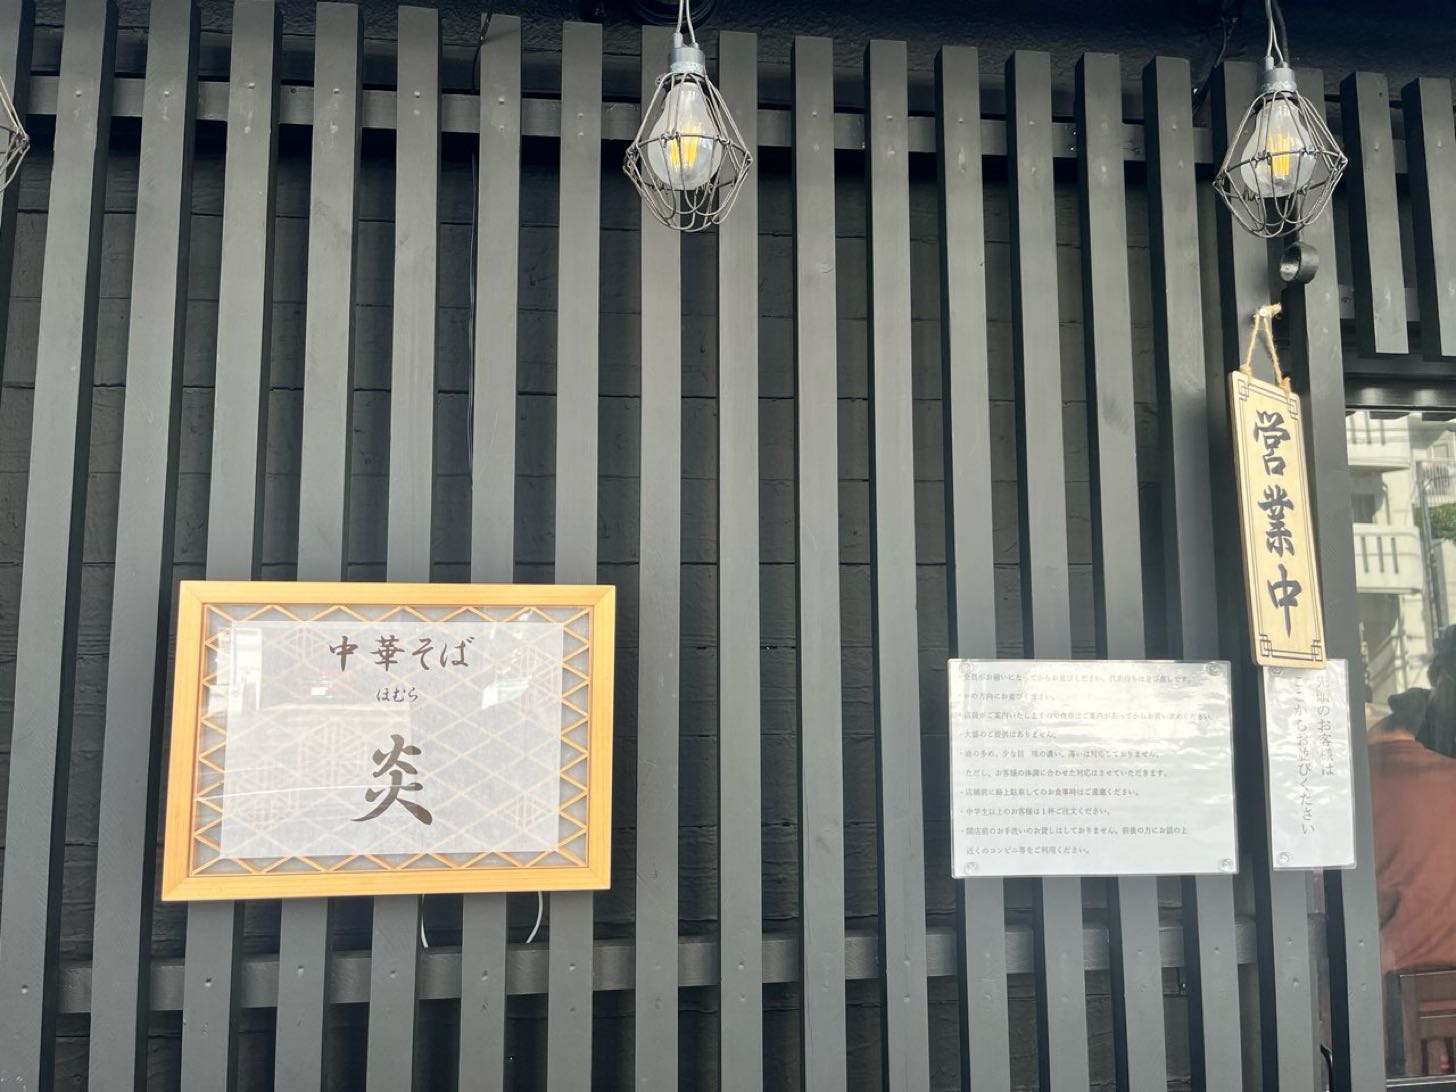 中華そば
ほむら
炎
営業中
・全員がお揃いになってからお並びください。代表待ちは禁止致します。
の方向にお並びください。
・大盛のご提供はありません。
・麺の多め、少な目 味の濃い、薄いは対応しておりません。
ただし、お客様の体調に合わせた対応はさせていただきます。
・店舗前に路上駐車してのお食事時はご遠慮ください。
・中学生以上のお客様は1杯ご注文ください。
・開店前のお手洗いのお貸しはしておりません。前後の方にお話の上
近くのコンビニ等をご利用ください。
先頭のお客様は
ここからお並びください